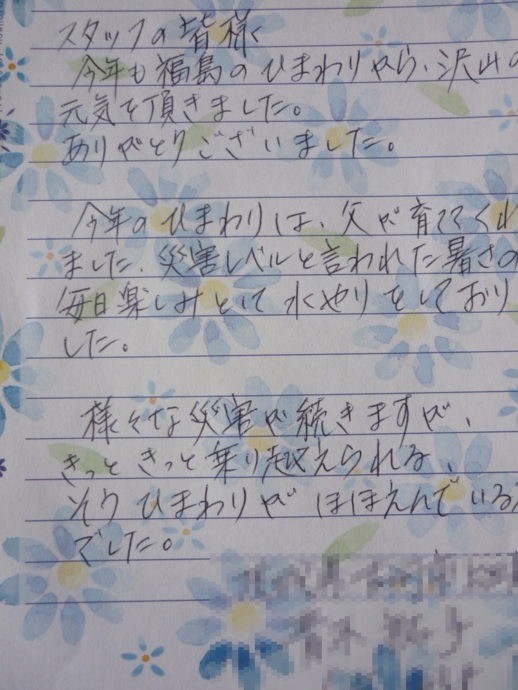 スタッフの皆様
今年も福島のひまわりから、沢山の
元気を頂きました。
ありがとうございました。
今年のひまわりは、父が育ててくれ
ました、災害レベルと言われた暑さの
毎日楽しみとして水やりをしており
した。
様々な災害が続きますが、
きっときっと乗り越えられる、
そうひまわりがほほえんでいる
でした。